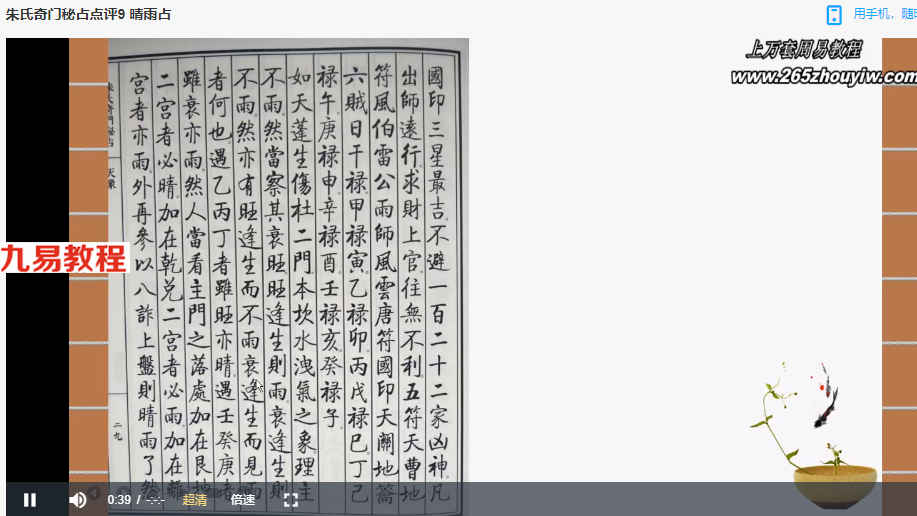 朱氏奇门秘占点评9 晴雨占
用手机，随时
上万套周易教程
www.265zhouyiw.com
國印三星最吉不避一百二十二家凶神凡
出師遠行求財上官往無不利五符天曹地
符風伯雷公雨師風雲唐符國印天關地
六賊日干祿甲祿寅乙祿卯丙戊祿巳丁己
祿午庚祿申辛祿酉壬祿亥癸祿子
如天蓬生傷杜二門本坎水洩氣之象理主
不雨然當察其衰旺旺逢生則雨衰逢生則
不雨然亦有旺逢生而不雨衰逢生而見雨
者何也遇乙丙丁者雖旺亦晴遇壬癸庚者
雖衰亦雨然人當看主門之落處加在艮坤
二宮者必晴加在乾兌二宮者必雨加在離
宮者亦雨外再參以八詐上盤則晴雨了然
二九
九易教程
0:39 / --:--
超清
倍速